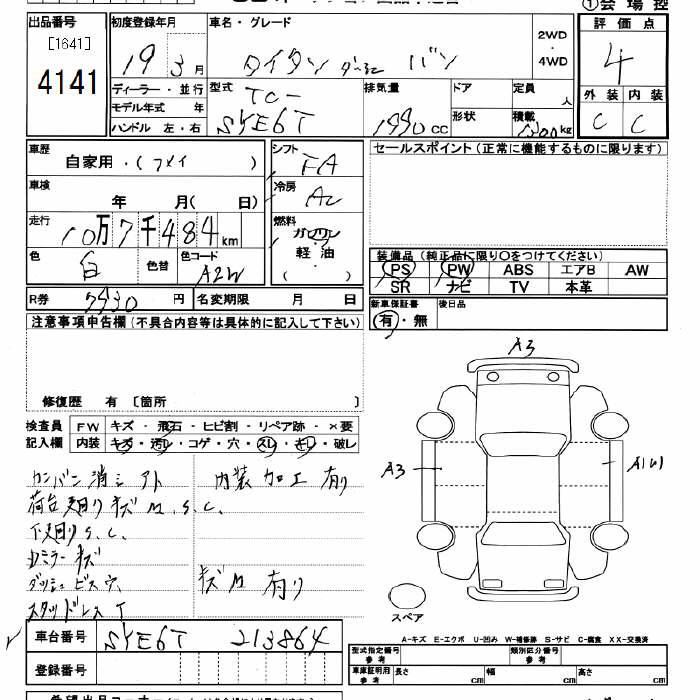 出品番号 初度登録年月 車名・グレード ①会場控
[1641] 評価点
4141 19 3月 タイタン ダーミニ バン 2WD・4WD 4
ディーラー・並行 型式 TC- 排気量 ドア 定員 人 外装 内装
モデル年式 年 SYE6T 1990cc 形状 積載 kg C C
ハンドル 左・右
車歴 自家用・( ) シフト FA セールスポイント(正常に機能するものに限ります)
車検 年 月( 日) 冷房 AC
走行 10万7千484km 燃料 ガソリン
軽油
( )
色 白 色替 色コード A2W 装備品(純正品に限り○をつけてください)
PS PW ABS エアB AW
SR ナビ TV 本革
R券 円 名変期限 月 日 新車保証書 後日品
有・無
注意事項申告欄(不具合内容等は具体的に記入して下さい)
A3
修復歴 有 [箇所 ]
検査員 FW キズ・飛石・ヒビ割・リペア跡・×要
記入欄 内装 キズ・汚レ・コゲ・穴・スレ・キレ・破レ
A3
カンバン消シアト 内装加工有り
荷台廻りキズ M. S. C.
下廻り S. C.
ミラーキズ
ダッシュビス穴 キズ M 有り
スタッドレス T
スペア
A-キズ E-エクボ U-凹み W-補修跡 S-サビ C-腐食 XX-交換済
車台番号 SYE6T 213864
型式指定番号 参考 類別区分番号 参考
登録番号 車庫証明用 参考 長さ cm 幅 cm 高さ cm